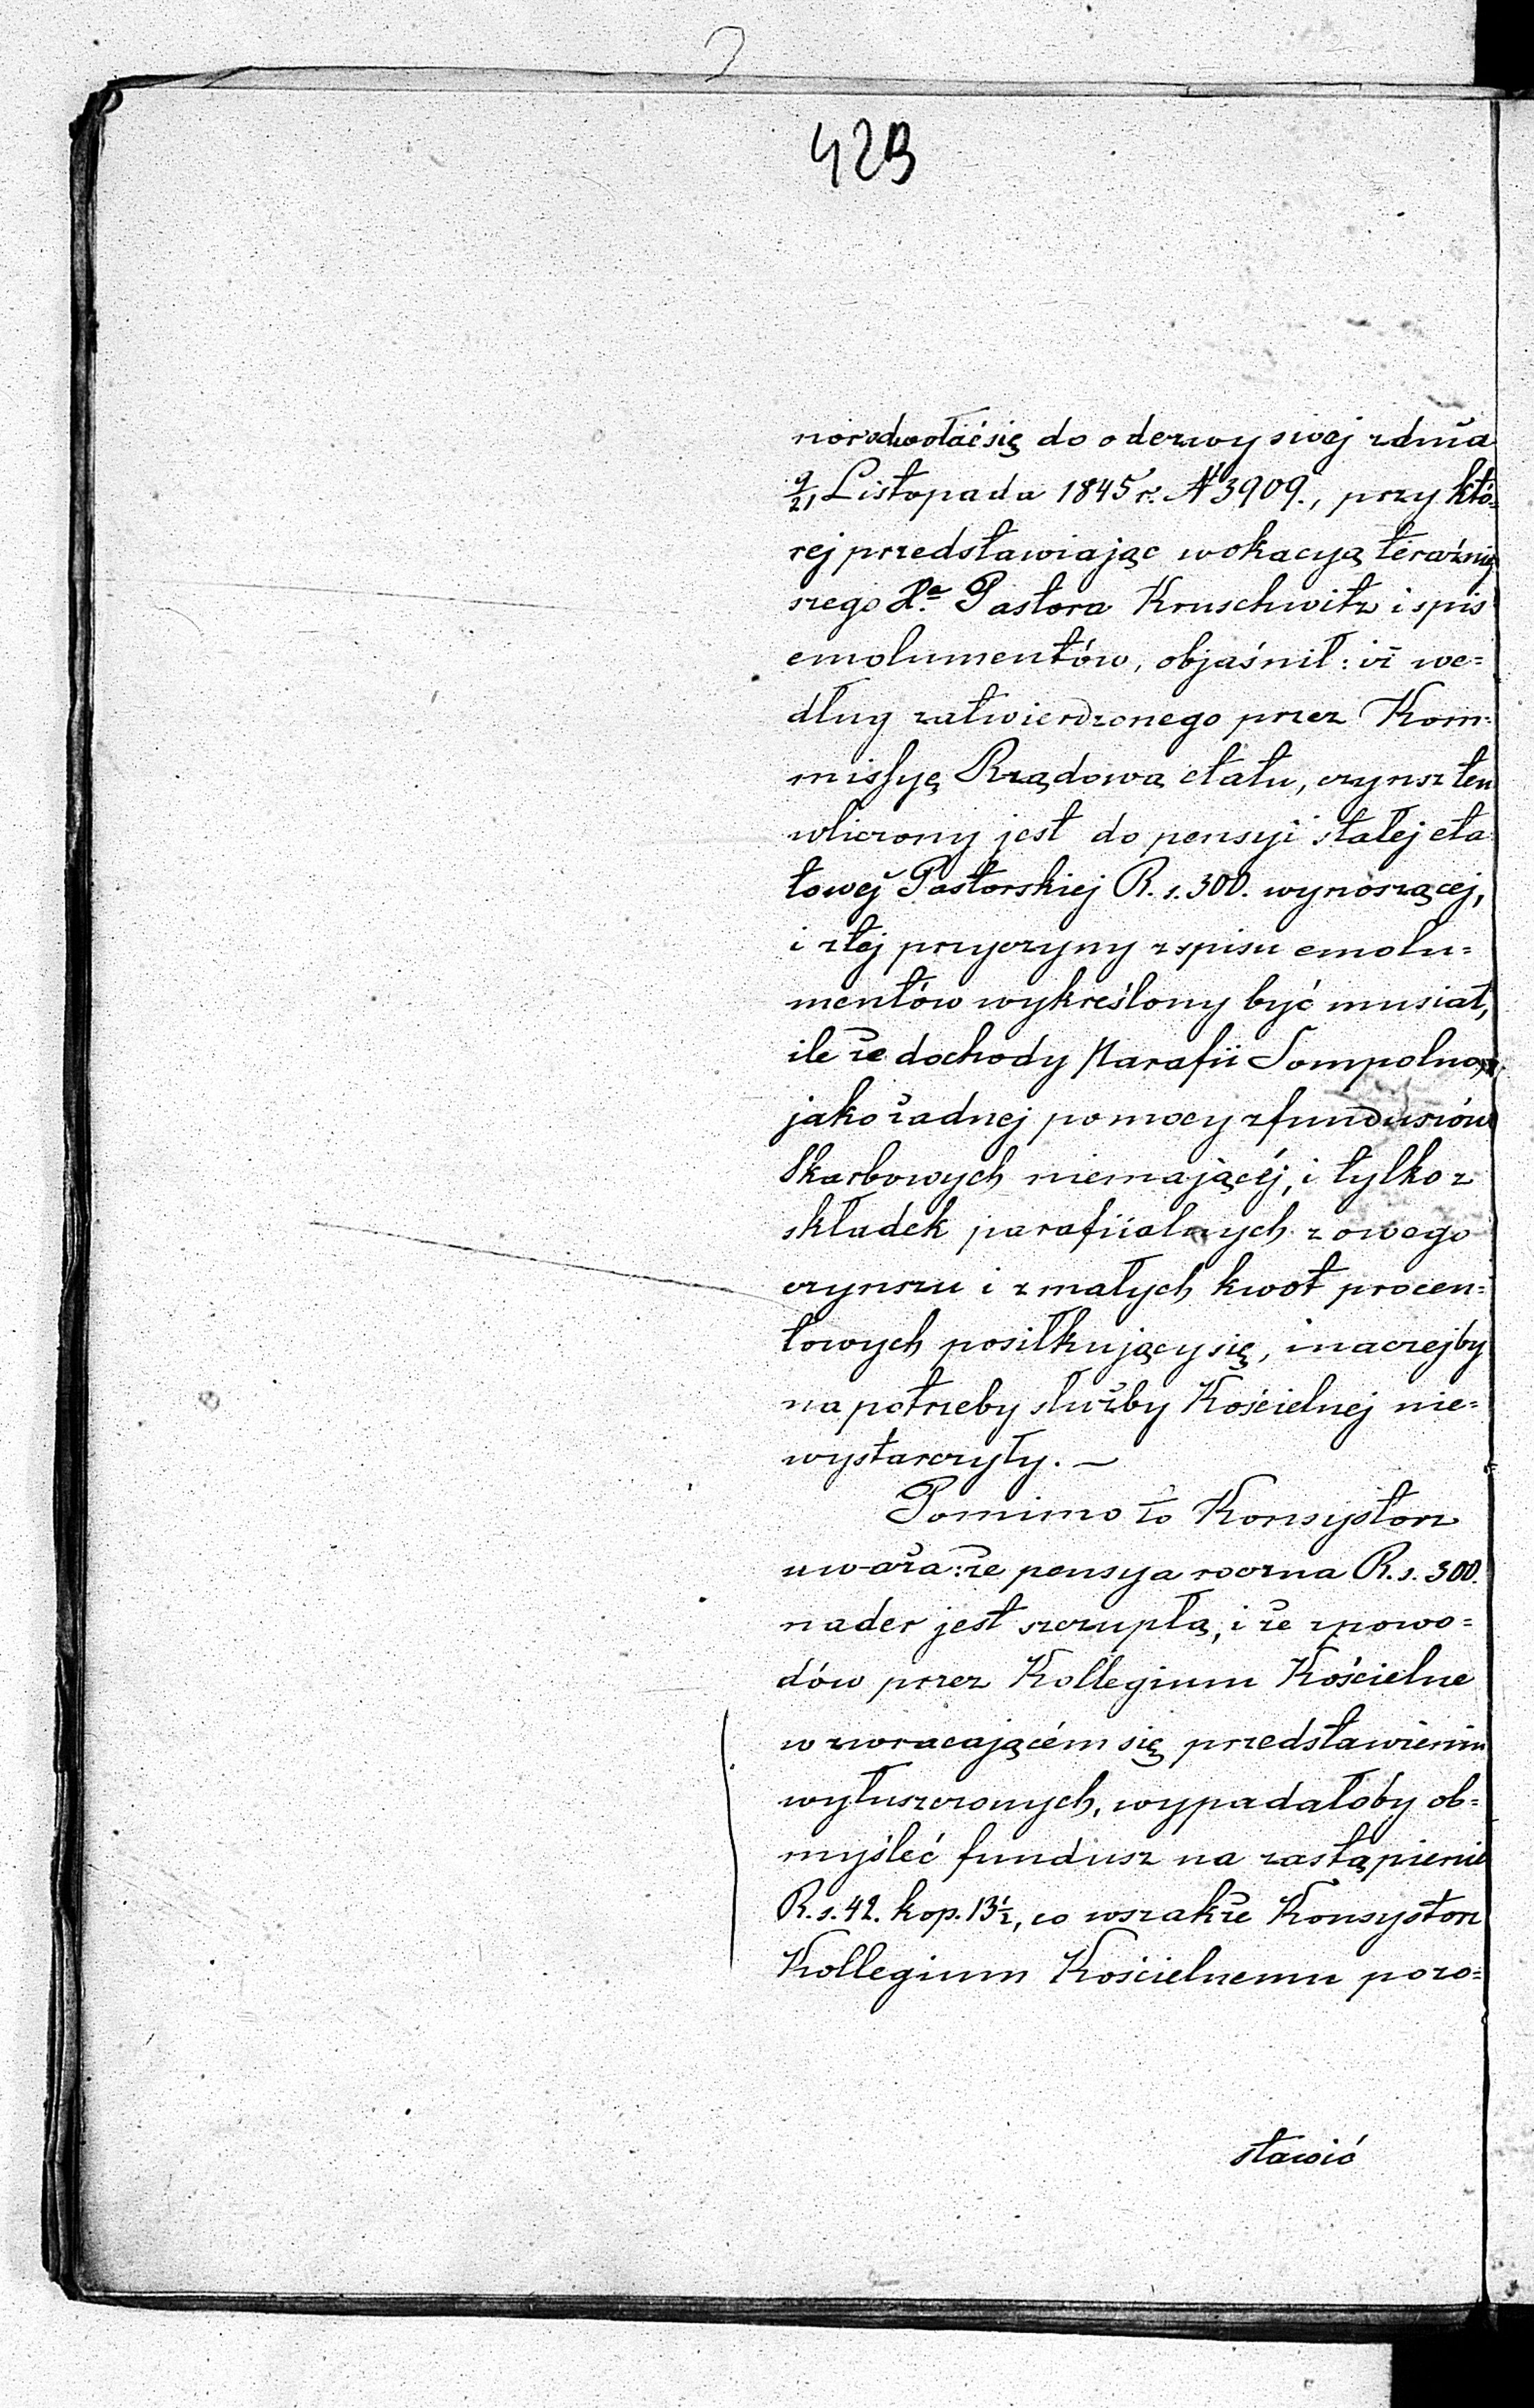 423
nór odwołać się do odezwy swej z dnia
9/21 Listopada 1845 r. N 3909., przy któ=
rej przedstawiając wokacyą teraźniej
szego Xa Pastora Kruschwitz i spis
emolumentów, objaśnił: iż we=
dług zatwierdzonego przez Kom=
missyę Rządową etatu, czynsz ten
wliczony jest do pensyi stałej eta
towej Pastorskiej R. s. 300. wynoszącej,
i z tej przyczyny z spisu emolu=
mentów wykreślony być musiał,
ile że dochody Parafii Sompolno,
jako żadnej pomocy z funduszów
Skarbowych niemającéj, i tylko z
składek parafiialnych z owego
czynszu i z małych kwot procen=
towych posiłkujący się, inaczejby
na potrzeby służby Kościelnej nie=
wystarczyły. —
Pomimo to Konsystorz
uważa: że pensya roczna R. s. 300.
nader jest szczupłą, i że z powo=
dów przez Kollegium Kościelne
w zwracającém się przedstawieniu
wyłuszczonych, wypadałoby ob=
myśleć fundusz na zastąpienie
R. s. 42. kop. 13½, co wszakże Konsystorz
Kollegium Kościelnemu pozo=
stawić